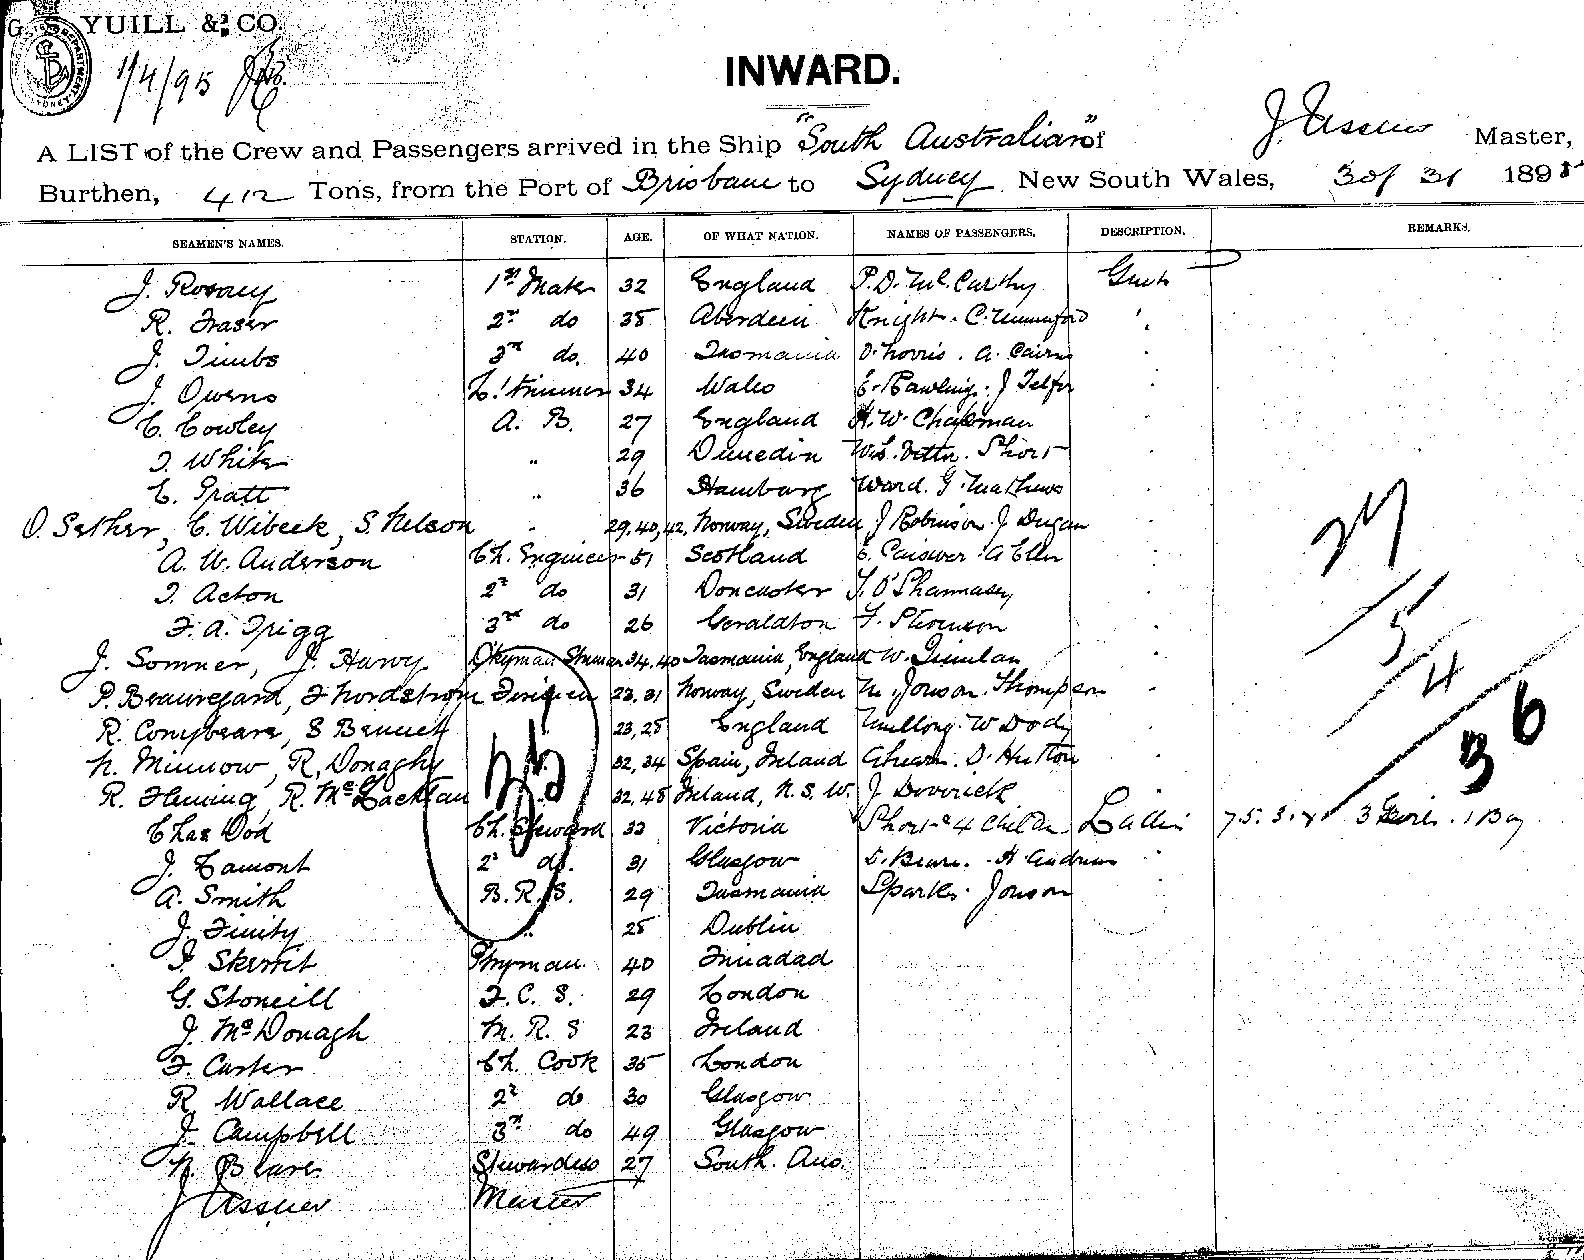 G. S. YUILL & CO.
1/4/95
INWARD.
A LIST of the Crew and Passengers arrived in the Ship "South Australian" of J. Ussher Master,
Burthen, 412 Tons, from the Port of Brisbane to Sydney New South Wales, 31 1895
SEAMEN'S NAMES. STATION. AGE. OF WHAT NATION. NAMES OF PASSENGERS. DESCRIPTION. REMARKS.
J. Rosaey 1st Mate 32 England P. D. McCarthy
R. Fraser 2nd do 35 Aberdeen Knight. C. Mummford
J. Timbs 3rd do. 40 Tasmania D. Norris. A. Cairns
J. Owens 34 Wales E. Rawling. J Telfer
C. Cowley A. B. 27 England H. W. Chapman
T. White " 29 Dunedin Short
C. Pratt " 36 Hamburg Ward. G. Mathews
O. Sether, C. Wibeck, S. Nelson " 29, 40, 42, Norway, Sweden J Robinson. J Dugan
A. W. Anderson Ch. Engineer 51 Scotland A Ellen
T. Acton 2nd do 31 Doncaster T. O'Shannasey
F. A. Trigg 3rd do 26 Geraldton F. Thomson
J. Somner, J. Harvy 34, 40 Tasmania, England W. Quinlan
P. Beauregard, F Nordstrom Firemen 23, 31 Norway, Sweden M. Jonson. Thompson
R. Conybeare, S Bennett 23, 25 England W Dody
N. Minnow, R. Donaghy 32, 34 Spain, Ireland Ahearn. D. Hutton
R. Fleming, R. McLachlan " 32, 48 Ireland, N. S. W. J Deverick
Chas Dod Ch. Steward 32 Victoria Short & 4 Childn
J. Lamont 2nd do. 31 Glasgow H Andrews
A. Smith B. R. S. 29 Tasmania Sparks. Jonson
J. Finity " 25 Dublin
T. Skerrit Ptryman 40 Trinadad
G. Stoneill F. C. S. 29 London
J. McDonagh M. R. S 23 Ireland
F. Carter Ch. Cook 35 London
R. Wallace 2nd do 30 Glasgow
J. Campbell 3rd do 49 Glasgow
N. Beare Stewardess 27 South. Aus.
J Ussher Master
27
5
4
36